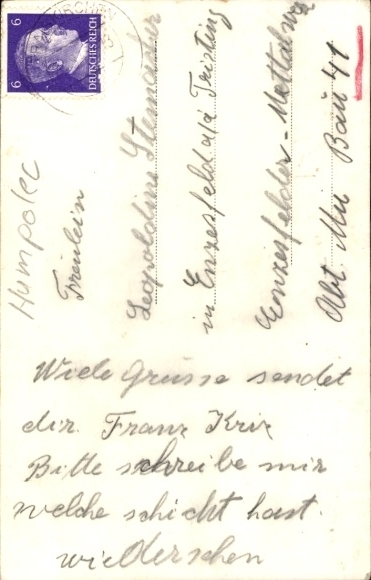 6
6
DEUTSCHES REICH
Humpolec
Freulein
Leopoldine
in Enzesfeld a/d Tristing
Enzesfelder - Mettalwg
Abt. Mu Bau 41
Wiele Grüsse sendet
dir. Franz Kriz
Bitte schreibe mir
welche schicht hast.
wiederschen